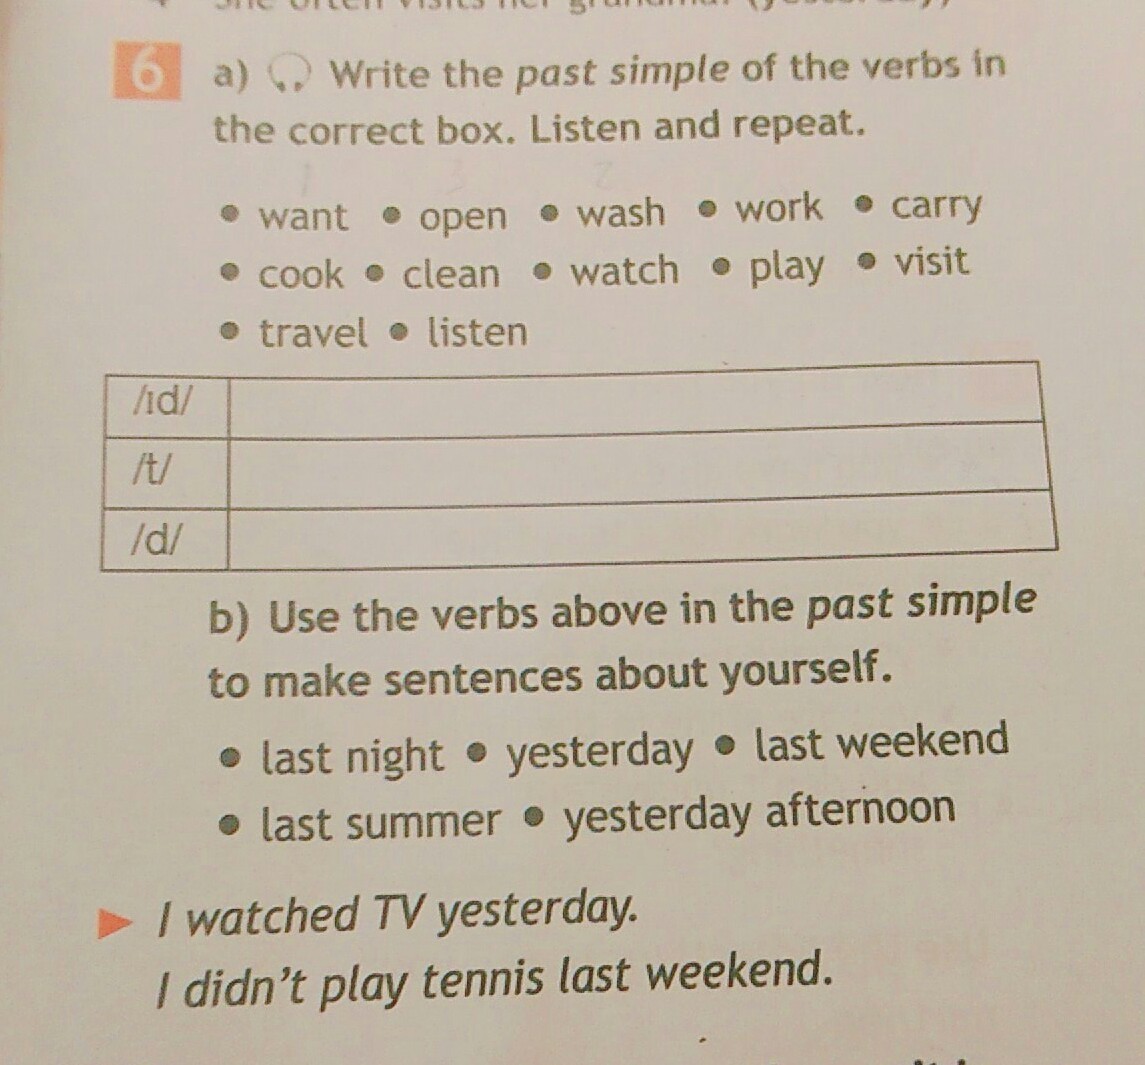 She often visits her grandma. (yesterday)
6 a) Write the past simple of the verbs in
the correct box. Listen and repeat.
• want • open • wash • work • carry
• cook • clean • watch • play • visit
• travel • listen
/ɪd/
/t/
/d/
b) Use the verbs above in the past simple
to make sentences about yourself.
• last night • yesterday • last weekend
• last summer • yesterday afternoon
I watched TV yesterday.
I didn't play tennis last weekend.